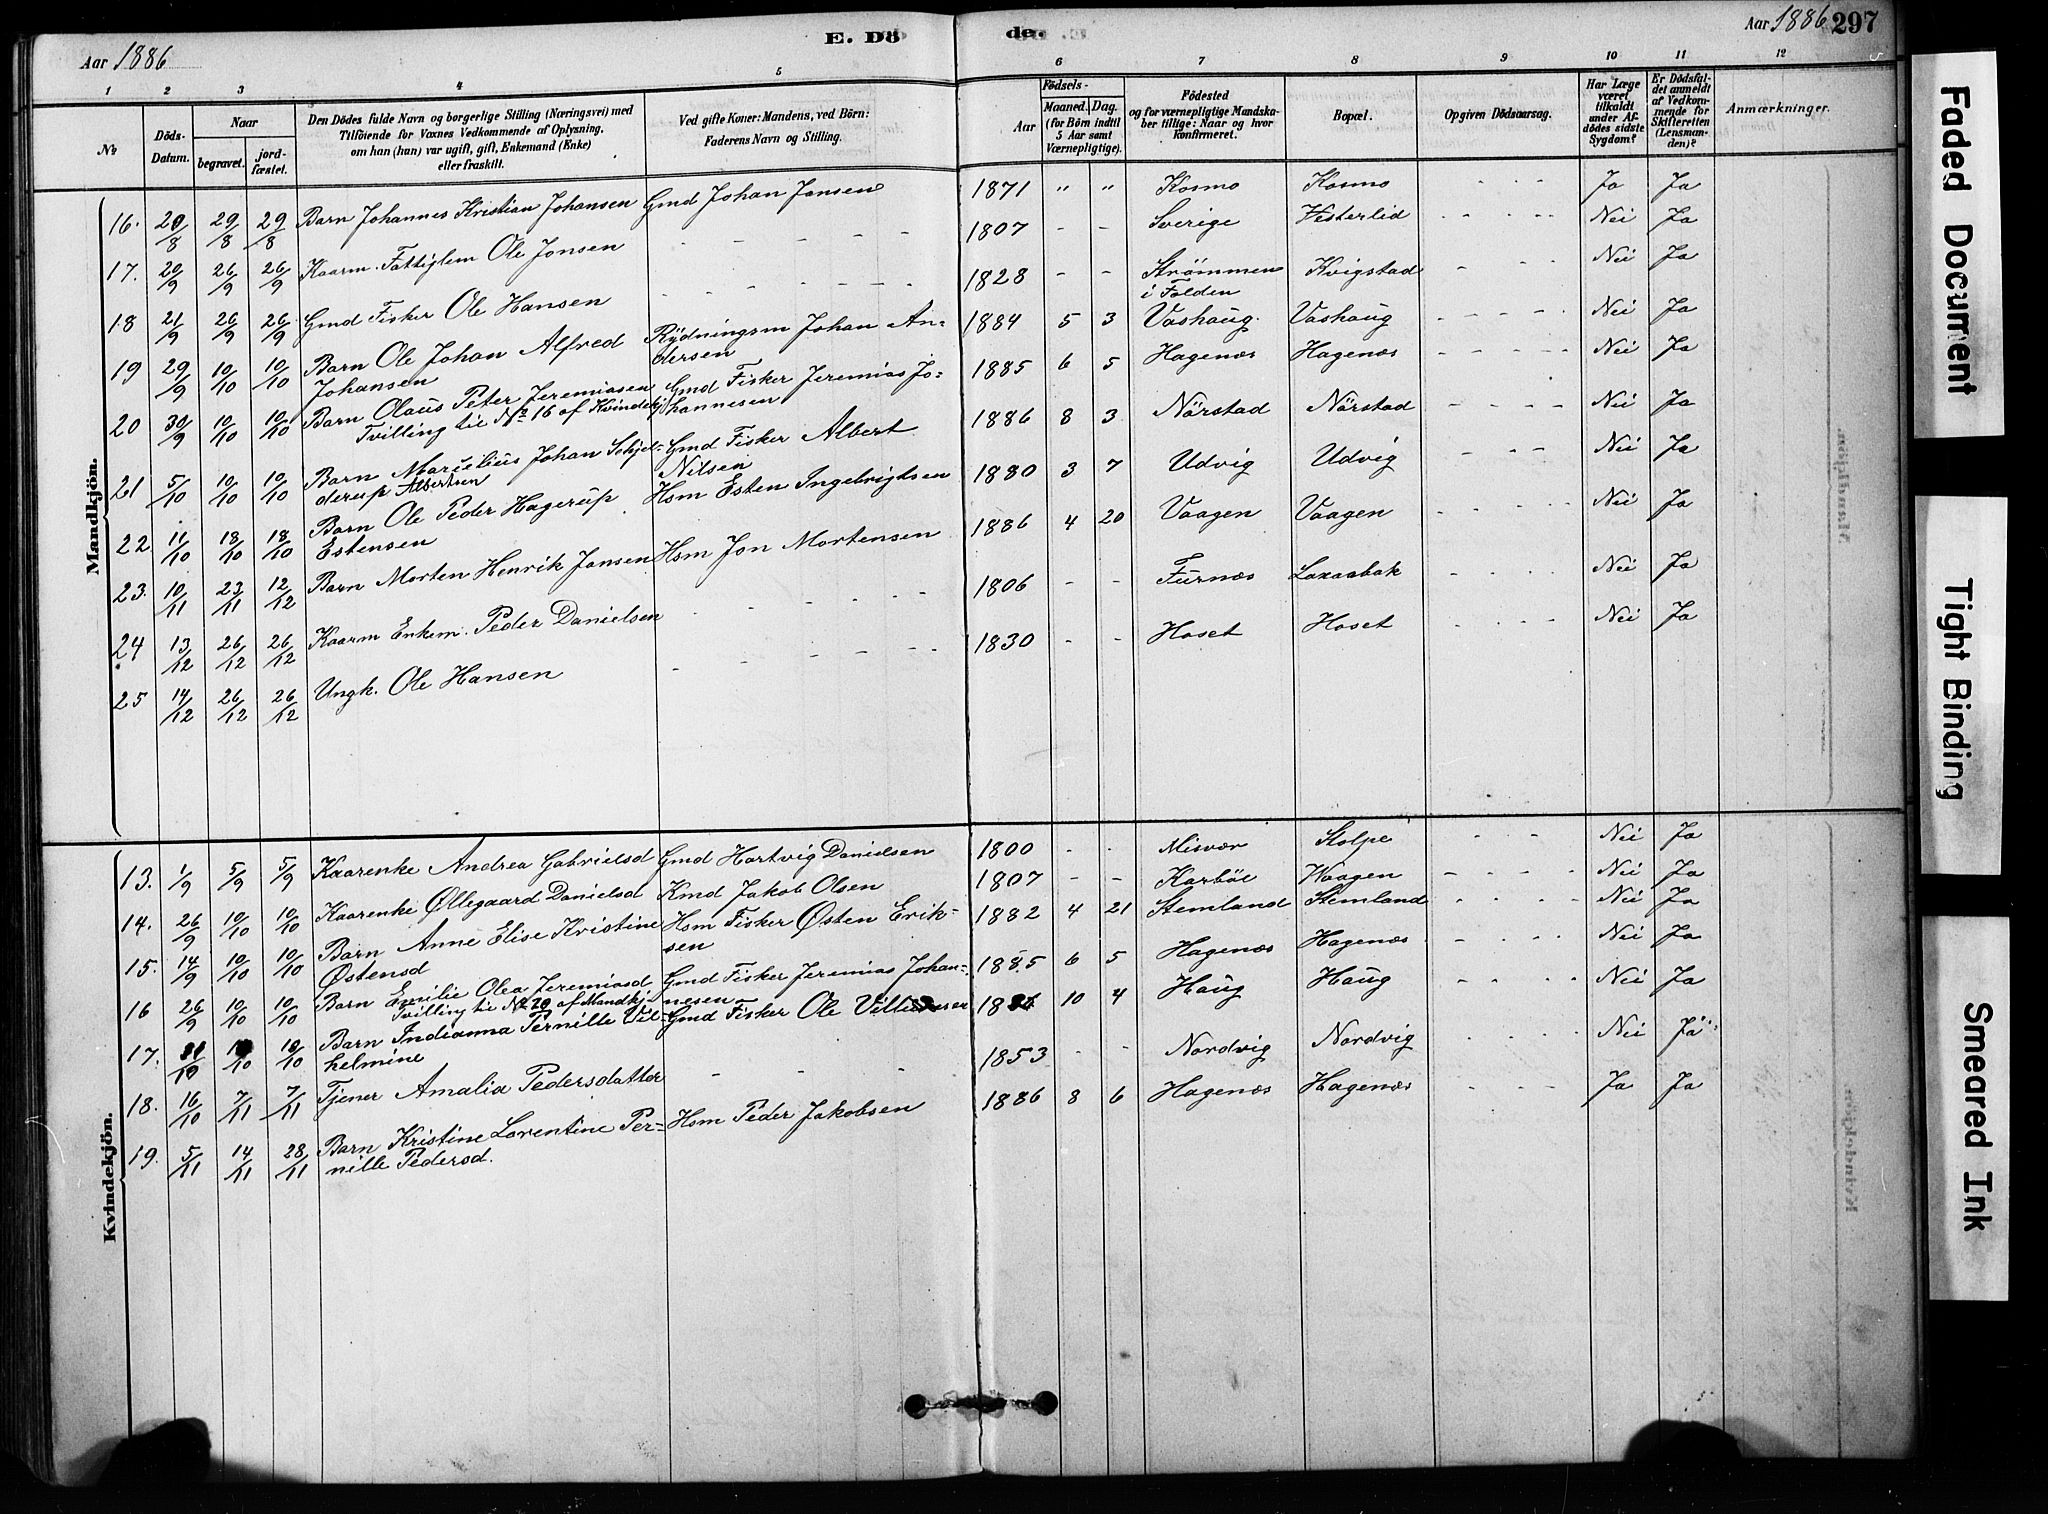 Aar 1886 E. Dö de. Aar 1886 297
1 2 3 4 5 6 7 8 9 10 11 12
No Döds-Datum. Naar begravet. jordfæstet. Den Dödes fulde Navn og borgerlige Stilling (Næringsvei) med Tilföiende for Voxnes Vedkommende af Oplysning, om han (hun) var ugift, gift, Enkemand (Enke) eller fraskilt. Ved gifte Koner: Mandens, ved Börn: Faderens Navn og Stilling. Födsels- Aar Maaned. Dag. (for Börn indtil 5 Aar samt Værnepligtige). Födested og for værnepligtige Mandskaber tillige: Naar og hvor Konfirmeret. Bopæl. Opgiven Dödsaarsag. Har Læge været tilkaldt under Afdödes sidste Sygdom? Er Dödsfaldet anmeldt af Vedkommende for Skifteretten (Lensmanden)? Anmærkninger.
Mandkjön.
16. 20/8 29/8 29/8 Barn Johannes Kristian Johansen Gmd Johan Jansen 1871 " " Kosmo Kosmo - - - Ja Ja
17. 20/9 26/9 26/9 Kaarm. Fattiglem Ole Jonsen - - - - 1807 - - Sverige Vesterlid - - - - Nei Ja
18 21/9 26/9 26/9 Gmd Fisker Ole Hansen - - - - 1828 - - Strømmen i Folden Kvigstad - - - Nei Ja
19 29/9 10/10 10/10 Barn Ole Johan Alfred Johansen Rydningsm Johan Andersen 1884 5 3 Vashaug. Vashaug - - - - Nei Ja
20 30/9 10/10 10/10 Barn Olaus Peter Jeremiasen Tvilling til No 16 af Kvindekj. Gmd Fisker Jeremias Johannesen 1885 6 5 Hagenæs Hagenæs - - - - Nei Ja
21 5/10 10/10 10/10 Barn Marselius Johan Schjelderup Albertsen Gmd Fisker Albert Nilsen 1886 8 3 Nörstad Nörstad - - - - Nei Ja
22 11/10 18/10 18/10 Barn Ole Peder Hagerup Estensen Hsm Esten Ingebrigtsen 1880 3 7 Udvig Udvig - - - Nei Ja
23. 10/11 23/11 12/12 Barn Morten Henrik Jonsen Hsm Jon Mortensen 1886 4 20 Vaagen Vaagen - - - - Nei Ja
24 13/12 26/12 26/12 Kaarm Enkem. Peder Danielsen - - - - 1806 - - Furnæs Laxaabak - - - Nei Ja
25 14/12 26/12 26/12 Ungk. Ole Hansen - - - - 1830 - - Hoset Hoset - - - - Nei Ja
Kvindekjön.
13. 1/9 5/9 5/9 Kaarenke Andrea Gabrielsd Gmd Hartvig Danielsen 1800 - - Misvær Stolpe - - - Nei Ja
14. 26/9 10/10 10/10 Kaarenke Øllegaard Danielsd Kmd Jakob Olsen 1807 - - Karböl Waagen - - - - Nei Ja
15. 14/9 10/10 10/10 Barn Anne Elise Kristine Østensd Hsm Fisker Østen Eriksen 1882 4 21 Stemland Stemland - - - - Nei Ja
16 26/9 10/10 10/10 Barn Emilie Olea Jeremiasd Tvilling til No 20 af Mandkj. Gmd Fisker Jeremias Johannesen 1885 6 5 Hagenæs Hagenæs - - - - Nei Ja
17. /10 /10 10/10 Barn Indianna Pernille Vilhelmine Gmd Fisker Ole 10 4 Haug Haug - - - Nei Ja
18. 16/10 7/11 7/11 Tjener Amalia Pedersdatter - - - 1853 - - Nordvig Nordvig - - - Nei Ja
19. 5/11 14/11 28/11 Barn Kristine Lorentine Pernille Pedersd. Hsm Peder Jakobsen 1886 8 6 Hagenæs Hagenæs - - - Ja Ja
Faded Document
Tight Binding
Smeared Ink